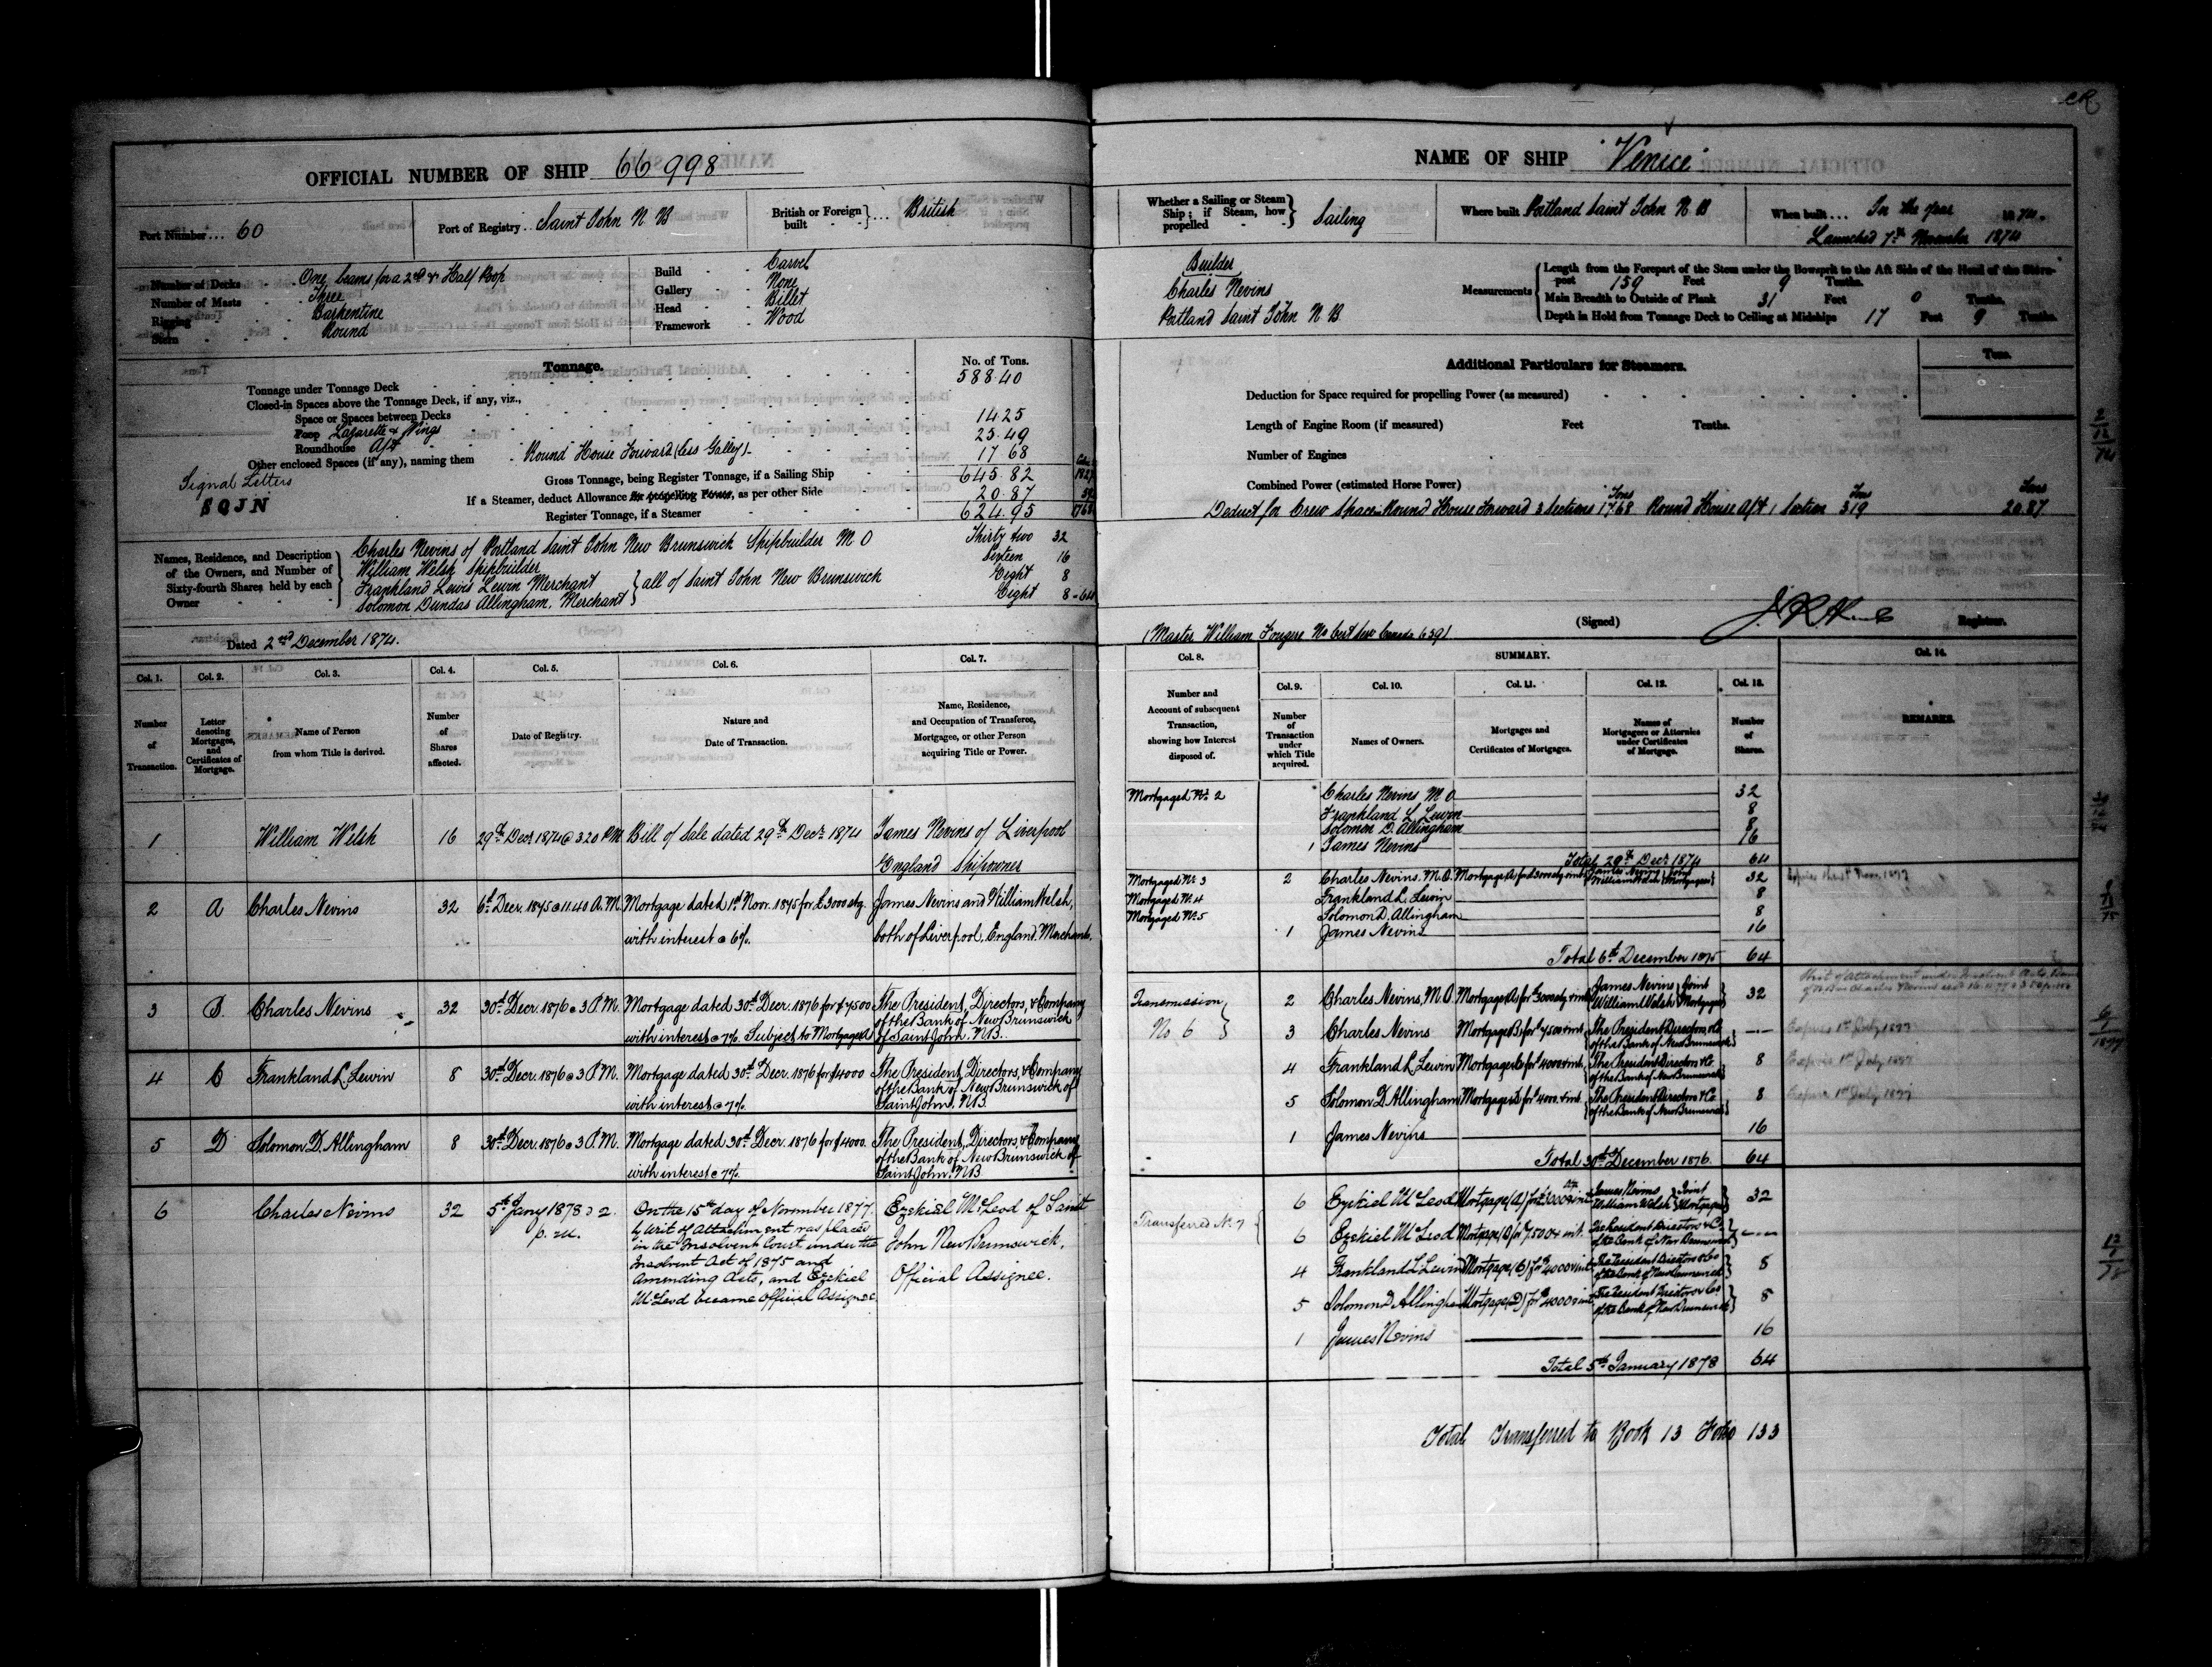 CR
OFFICIAL NUMBER OF SHIP 66998
Port Number... 60
Port of Registry.. Saint John N B
British or Foreign built }... British
Number of Decks One, beams for a 2nd & Half Poop
Number of Masts Three
Rigging Barkentine
Stern Round
Build Carvel
Gallery None
Head Billet
Framework Wood
Tonnage.
No. of Tons.
Tonnage under Tonnage Deck 588.40
Closed-in Spaces above the Tonnage Deck, if any, viz.,
Space or Spaces between Decks
Poop Lazarette & Wings 14.25
Roundhouse Aft 25.49
Other enclosed Spaces (if any), naming them Round House Forward (less Galley) 17.68
Gross Tonnage, being Register Tonnage, if a Sailing Ship 645.82
If a Steamer, deduct Allowance for propelling Power, as per other Side 20.87
Register Tonnage, if a Steamer 624.95
Signal Letters
SQJN
Names, Residence, and Description of the Owners, and Number of Sixty-fourth Shares held by each Owner
Charles Nevins of Portland Saint John New Brunswick Shipbuilder M O Thirty two 32
William Welsh Shipbuilder Sixteen 16
Frankland Lewis Lewin Merchant } all of Saint John New Brunswick Eight 8
Solomon Dundas Allingham, Merchant Eight 8-64
Dated 2nd December 1874.
Col. 1. Col. 2. Col. 3. Col. 4. Col. 5. Col. 6. Col. 7.
Number of Transaction.
Letter denoting Mortgages, and Certificates of Mortgage.
Name of Person from whom Title is derived.
Number of Shares affected.
Date of Registry.
Nature and Date of Transaction.
Name, Residence, and Occupation of Transferee, Mortgagee, or other Person acquiring Title or Power.
1 William Welsh 16 29th Decr 1874 @ 3.20 P.M. Bill of Sale dated 29th Decr 1874 James Nevins of Liverpool
England Shipowner
2 A Charles Nevins 32 6th Decr. 1875 @ 11.40 A.M. Mortgage dated 1st Novr. 1875 for £3000 stg. James Nevins and William Welsh,
with interest @ 6%. both of Liverpool, England, Merchants.
3 B. Charles Nevins 32 30th Decr. 1876 @ 3 P.M. Mortgage dated 30th Decr. 1876 for $7500 The President, Directors, & Company
of the Bank of New Brunswick
with interest @ 7%. Subject to Mortgage A of Saint John, N.B.
4 C Frankland L. Lewin 8 30th Decr. 1876 @ 3 P.M. Mortgage dated 30th Decr. 1876 for $4000 The President, Directors, & Company
of the Bank of New Brunswick of
with interest @ 7%. Saint John, N.B.
5 D Solomon D. Allingham 8 30th Decr. 1876 @ 3 P.M. Mortgage dated 30th Decr. 1876 for $4000. The President, Directors, & Company
of the Bank of New Brunswick of
with interest @ 7%. Saint John, N.B
6 Charles Nevins 32 5th Jany 1878 @ 2 p.m. On the 15th day of November 1877 Ezekiel McLeod of Saint
a Writ of Attachment was placed
in the Insolvent Court under the John New Brunswick,
Insolvent Act of 1875 and
Amending Acts, and Ezekiel Official Assignee.
McLeod became Official Assignee
NAME OF SHIP "Venice"
Whether a Sailing or Steam Ship; if Steam, how propelled } Sailing
Where built Portland Saint John N B
When built... In the year 1874.
Launched 7th November 1874
Builder
Charles Nevins
Portland Saint John N B.
Measurements
Length from the Forepart of the Stem under the Bowsprit to the Aft Side of the Head of the Stern-post 159 Feet 9 Tenths.
Main Breadth to Outside of Plank 31 Feet 0 Tenths.
Depth in Hold from Tonnage Deck to Ceiling at Midships 17 Feet 9 Tenths.
Additional Particulars for Steamers.
Tons.
Deduction for Space required for propelling Power (as measured)
Length of Engine Room (if measured) Feet Tenths.
Number of Engines
Combined Power (estimated Horse Power)
Deduct for Crew Space - Round House Forward 3 Sections 17.68 Tons Round House Aft 1 Section 3.19 Tons 20.87 Tons
(Signed) Registrar.
(Master William
Col. 8. SUMMARY. Col. 14.
Col. 9. Col. 10. Col. 11. Col. 12. Col. 13.
Number and Account of subsequent Transaction, showing how Interest disposed of.
Number of Transaction under which Title acquired.
Names of Owners.
Mortgages and Certificates of Mortgages.
Names of Mortgagees or Attornies under Certificates of Mortgage.
Number of Shares.
REMARKS.
Mortgaged No. 2 Charles Nevins M O 32
Frankland L Lewin 8
Solomon D. Allingham 8
1 James Nevins 16
Total 29th Decr 1874 64
Mortgaged No. 3 2 Charles Nevins. M.O. Mortgage A for £3000 stg & int James Nevins William Welsh } Joint Mortgagees 32
Mortgaged No. 4 Frankland L. Lewin 8
Mortgaged No. 5 Solomon D. Allingham 8
1 James Nevins 16
Total 6th December 1875 64
Transmission No 6 2 Charles Nevins, M.O. Mortgage A for £3000 stg & int James Nevins William Welsh } Joint Mortgagees 32
3 Charles Nevins Mortgage B for $7500 & int. The President Directors & Co of the Bank of New Brunswick
Expires 1st July 1877
4 Frankland L Lewin Mortgage C for $4000 & int. The President Directors & Co. of the Bank of New Brunswick 8
Expires 1st July 1877
5 Solomon D Allingham Mortgage D for $4000. & int. The President Directors & Co of the Bank of New Brunswick 8
Expires 1st July 1877
1 James Nevins 16
Total 30th December 1876. 64
Transferred No. 7 6 Ezekiel McLeod Mortgage (A) for £3000 stg & int James Nevins William Welsh } Joint Mortgagees 32
6 Ezekiel McLeod Mortgage (B) for $7500 & int. The President Directors & Co. of the Bank of New Brunswick
4 Frankland L Lewin Mortgage (C) for $4000 & int The President Directors & Co of the Bank of New Brunswick 8
5 Solomon D Allingham Mortgage (D) for $4000 & int The President Directors & Co of the Bank of New Brunswick 8
1 James Nevins 16
Total 5th January 1878 64
Total Transferred to Book 13 Folio 133